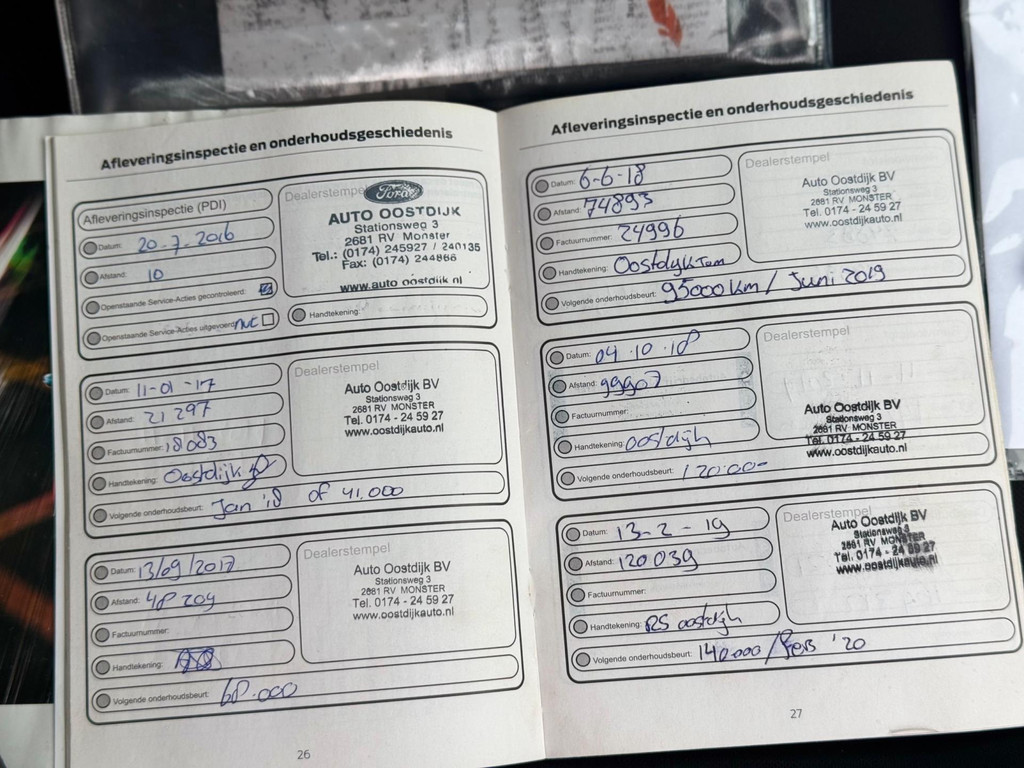 Afleveringsinspectie en onderhoudsgeschiedenis
Afleveringsinspectie (PDI)
Datum: 20-7-2016
Afstand: 10
Openstaande Service-Acties gecontroleerd:
Openstaande Service-Acties uitgevoerd:
Dealerstempel
Ford
AUTO OOSTDIJK
Stationsweg 3
2681 RV Monster
Tel.: (0174) 245927 / 240135
Fax: (0174) 244866
www.auto oostdijk nl
Handtekening:
Datum: 11-01-17
Afstand: 21297
Factuurnummer: 18083
Handtekening: Oostdijk
Volgende onderhoudsbeurt: Jan '18 of 41.000
Dealerstempel
Auto Oostdijk BV
Stationsweg 3
2681 RV MONSTER
Tel. 0174 - 24 59 27
www.oostdijkauto.nl
Datum: 13/09/2017
Afstand: 48209
Factuurnummer:
Handtekening:
Volgende onderhoudsbeurt: 68.000
Dealerstempel
Auto Oostdijk BV
Stationsweg 3
2681 RV MONSTER
Tel. 0174 - 24 59 27
www.oostdijkauto.nl
26
Afleveringsinspectie en onderhoudsgeschiedenis
Datum: 6-6-18
Afstand: 74893
Factuurnummer: 24996
Handtekening: Oostdijk
Volgende onderhoudsbeurt: 95000 km / Juni 2019
Dealerstempel
Auto Oostdijk BV
Stationsweg 3
2681 RV MONSTER
Tel. 0174 - 24 59 27
www.oostdijkauto.nl
Datum: 04.10.18
Afstand: 99907
Factuurnummer:
Handtekening: oostdijk
Volgende onderhoudsbeurt: 120.00-
Dealerstempel
Auto Oostdijk BV
Stationsweg 3
2681 RV MONSTER
Tel. 0174 - 24 59 27
www.oostdijkauto.nl
Datum: 13-2-19
Afstand: 120039
Factuurnummer:
Handtekening: RS oostdijk
Volgende onderhoudsbeurt: 140.000 / Feb '20
Dealerstempel
Auto Oostdijk BV
Stationsweg 3
2681 RV MONSTER
Tel. 0174 - 24 59 27
www.oostdijkauto.nl
27